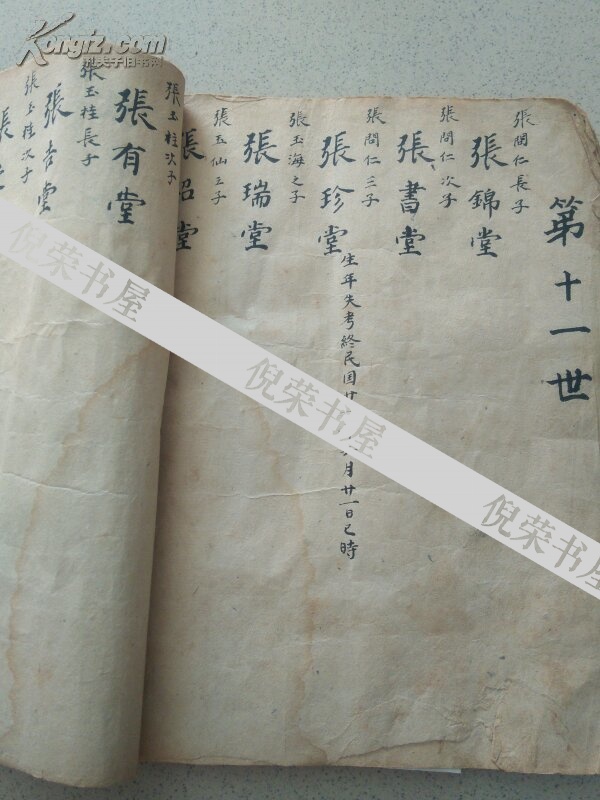 第十一世
張問仁長子
張錦堂
張問仁次子
張書堂
張問仁三子
張珍堂
生年失考終民国廿 月廿一日巳時
張玉海之子
張瑞堂
張玉仙之子
張紹堂
張玉柱次子
張有堂
張玉桂長子
張 堂
張玉桂次子
張
Kongfz.com
孔夫子旧书网
倪荣书屋
倪荣书屋
倪荣书屋